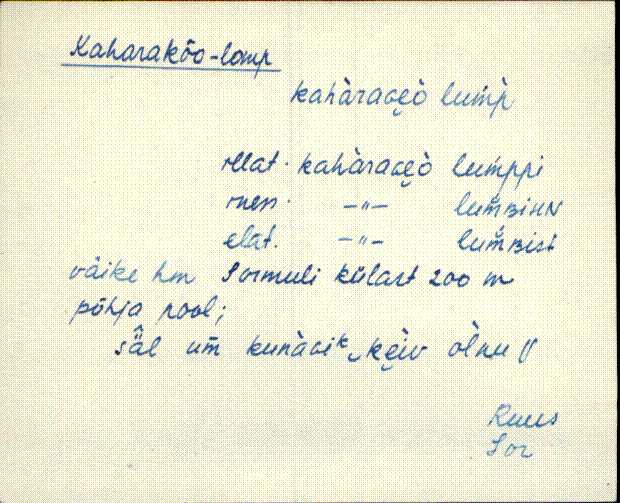 Kaharakõo-lomp
kahàraɢè̮ò lum̀p
illat. kahàraɢè̮ò lum̀ppi
iness. —"— lum̆ʙiHN
elat. —"— lum̆ʙist
väike hm Sormuli külast 200 m
põhja pool;
sä̂l um̄ kunàɢiᵏ ke̮iv òlnu //
Ruus
Sor